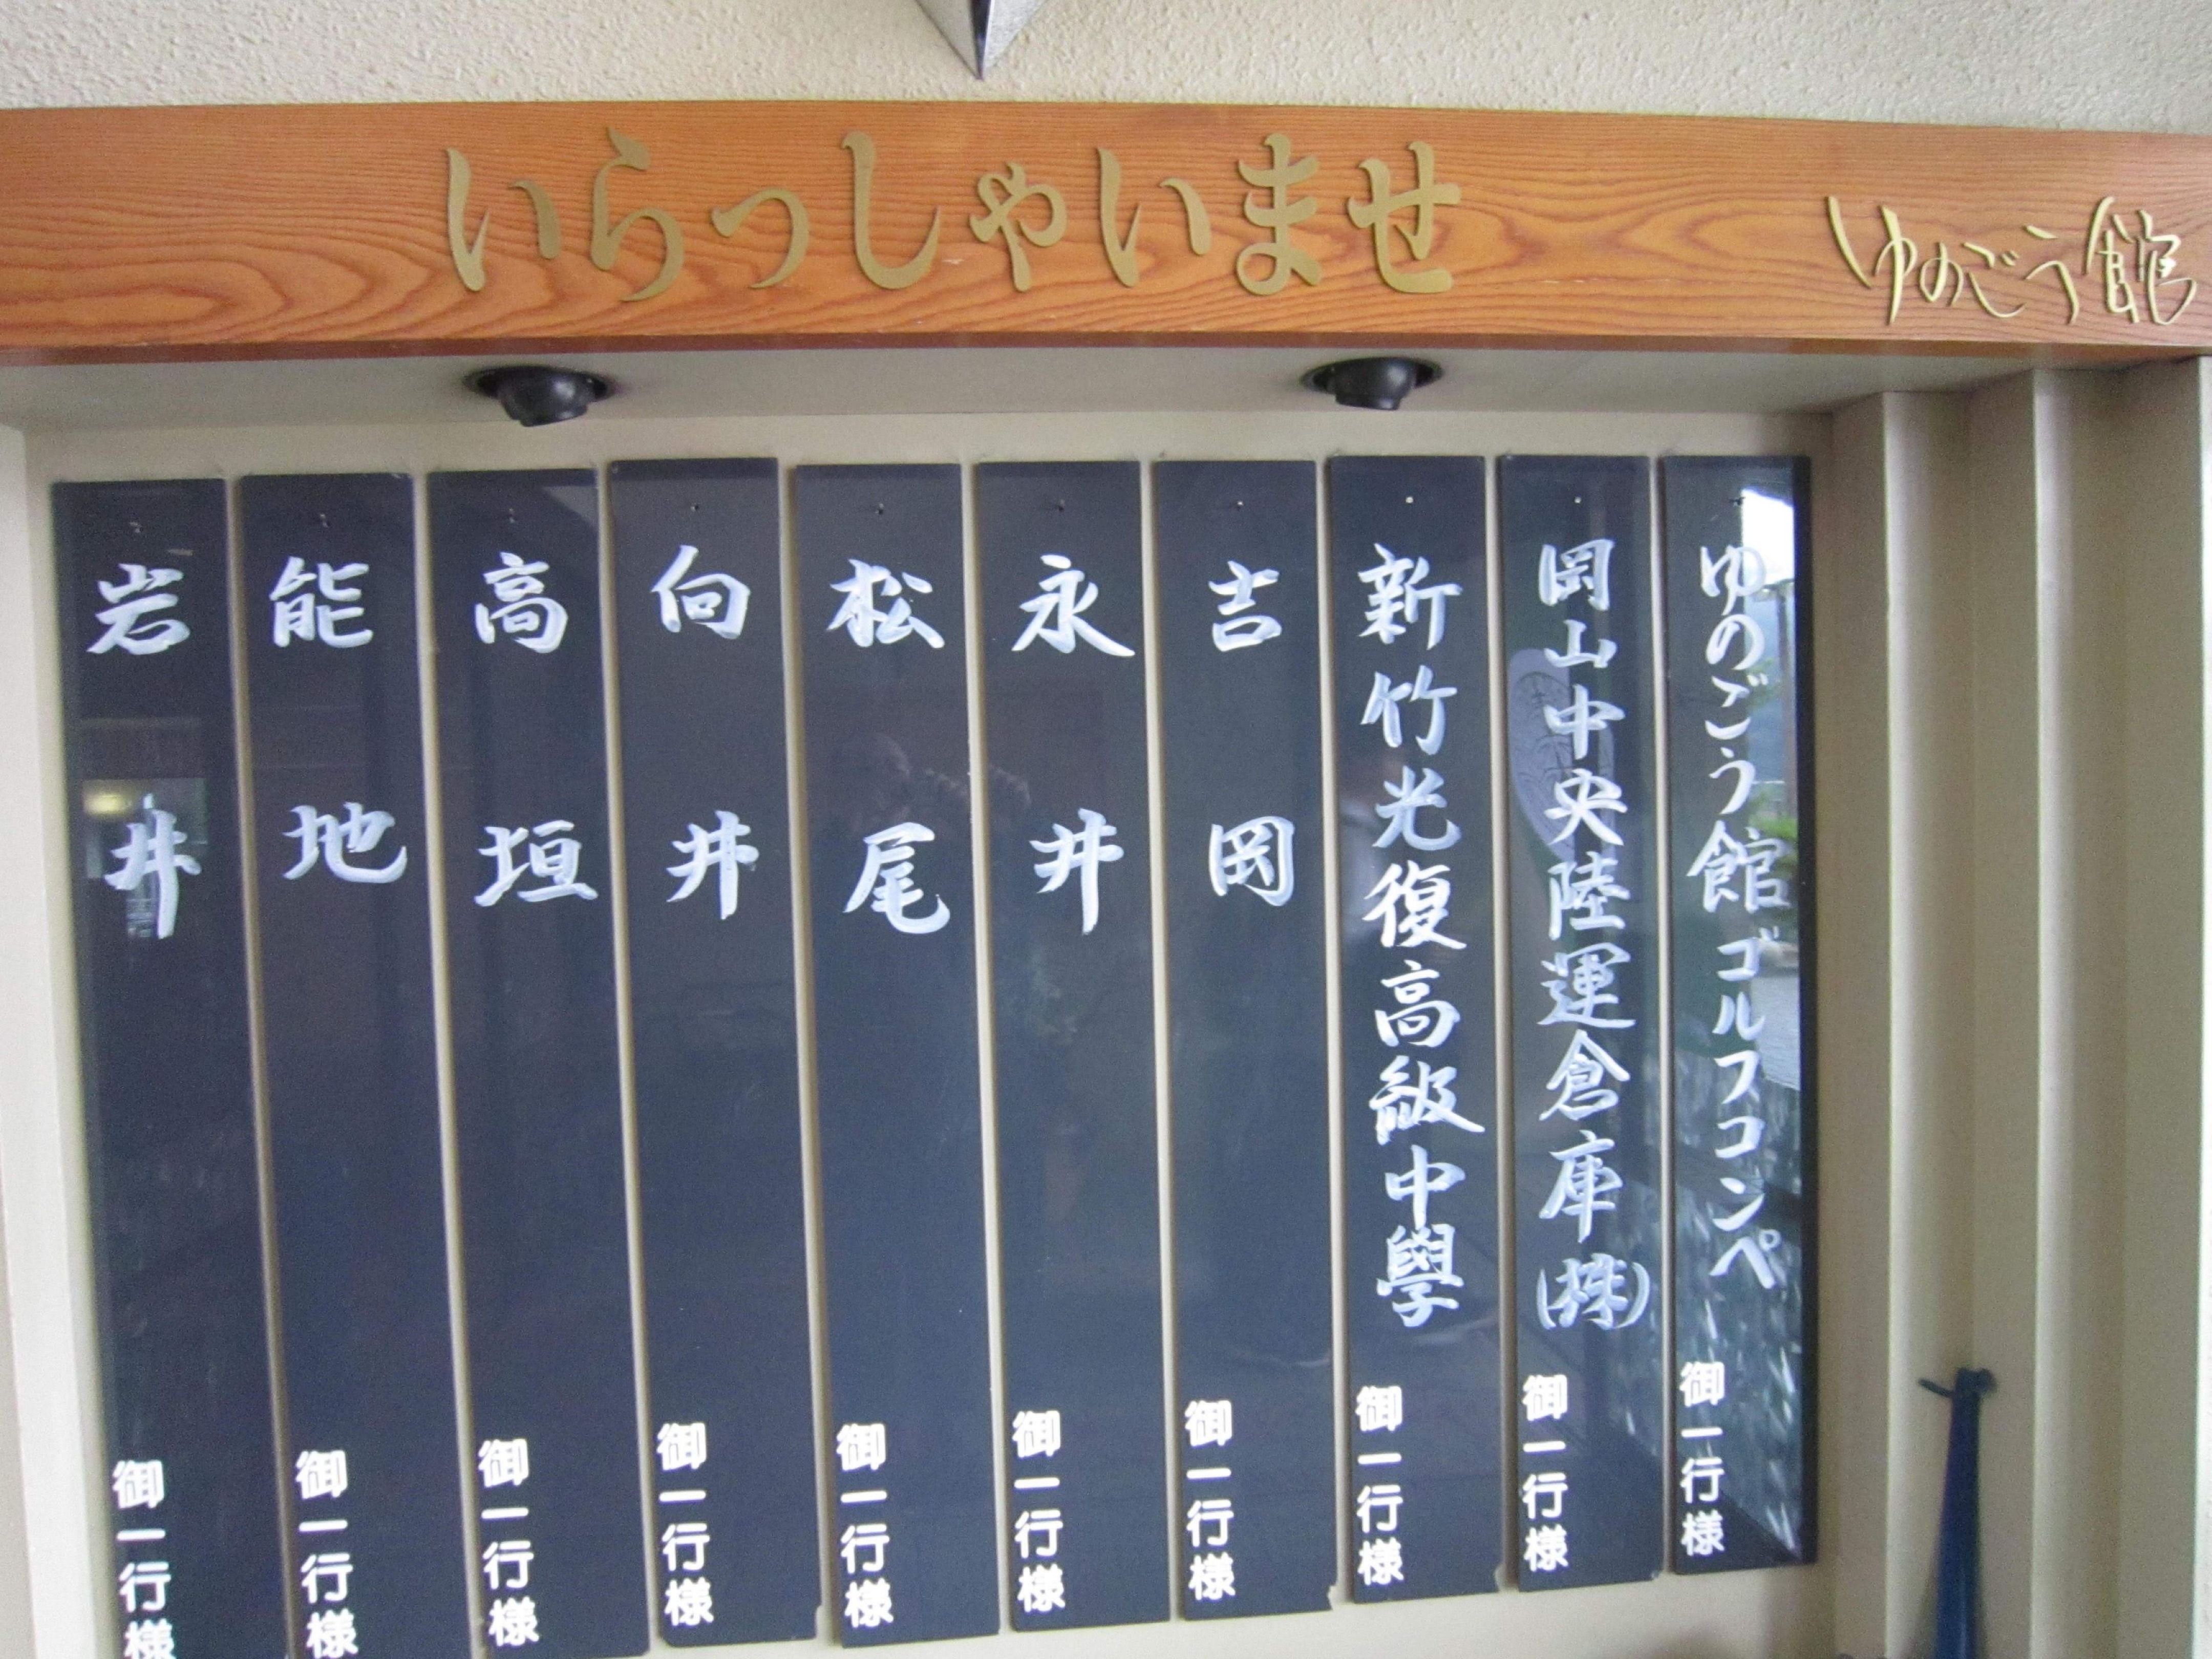 いらっしゃいませ
ゆのごう館
ゆのごう館ゴルフコンペ 御一行様
岡山中央陸運倉庫(株) 御一行様
新竹光復高級中學 御一行様
吉岡 御一行様
永井 御一行様
松尾 御一行様
向井 御一行様
高垣 御一行様
能地 御一行様
岩井 御一行様